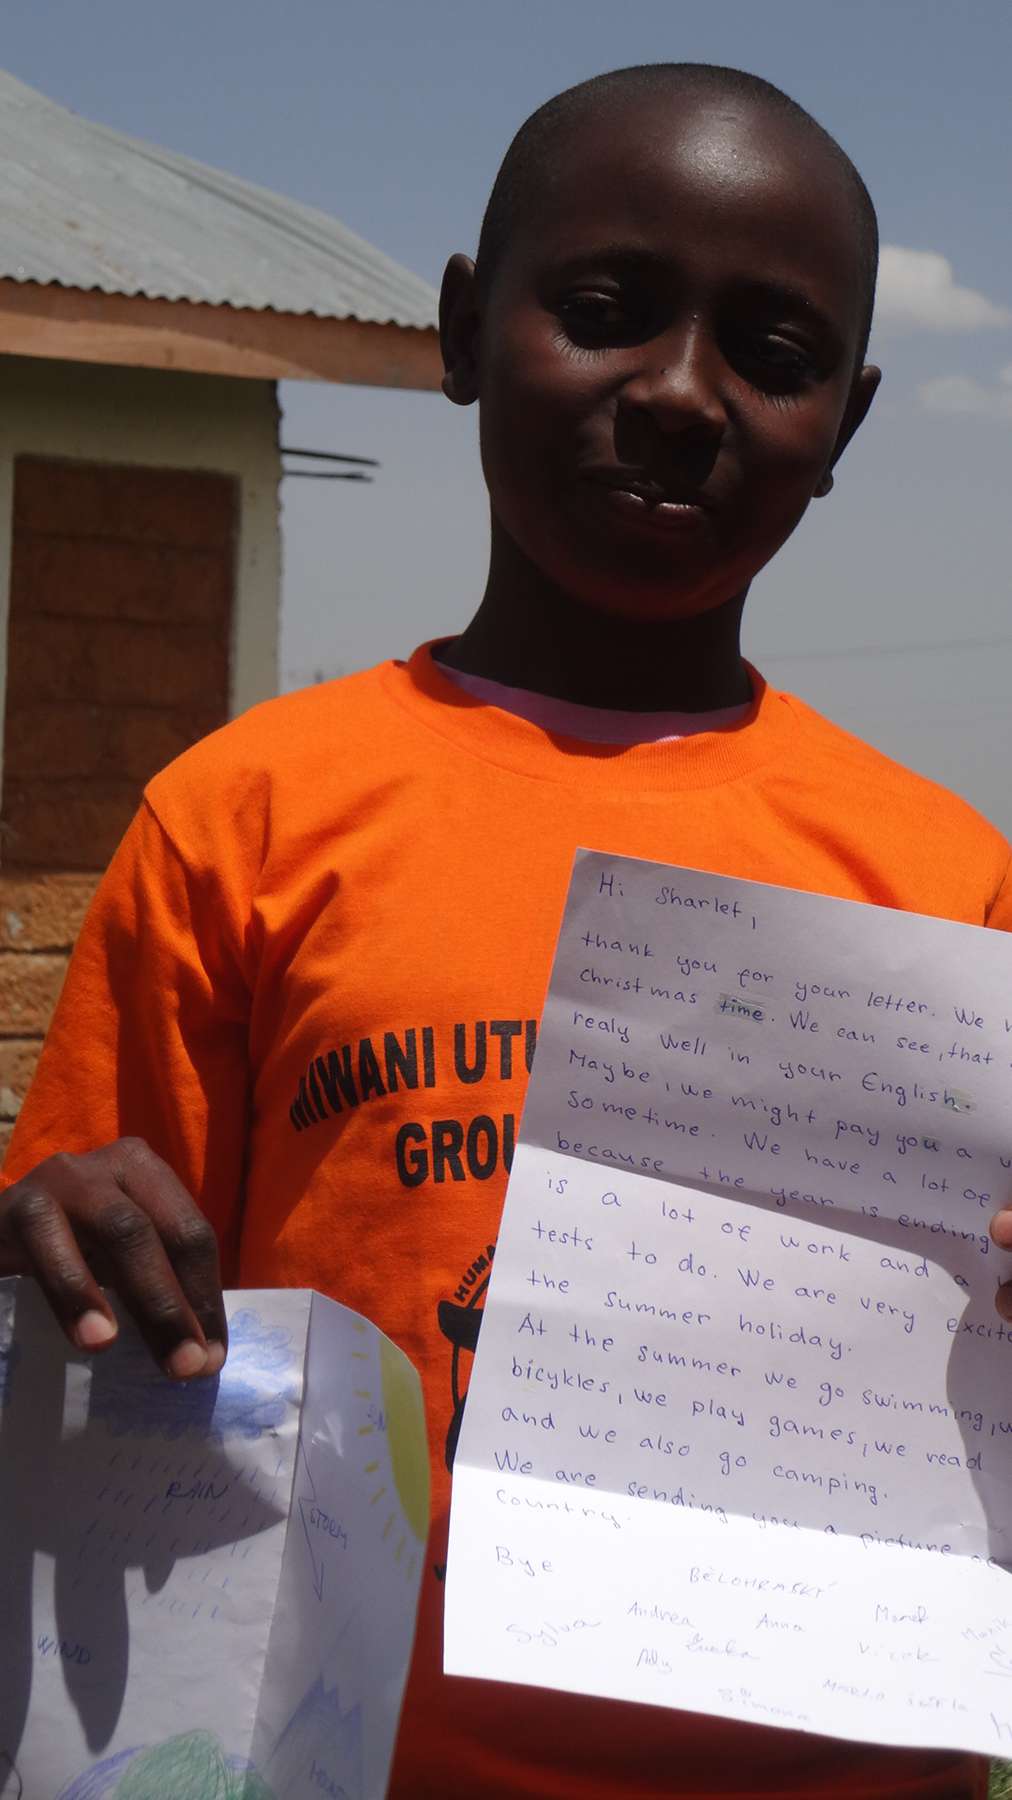 Hi Sharlet,
thank you for your letter. We
christmas time. We can see, that
realy well in your English.
Maybe, we might pay you a
sometime. We have a lot of
because the year is ending
is a lot of work and a
tests to do. We are very excite
the summer holiday.
At the summer we go swimming,
bicykles, we play games, we read
and we also go camping.
We are sending you a picture of
country.
Bye
BĚLOHRASKÝ
Andrea Anna Marek
Sylva
Ady
Simona
MIWANI UTU
GROU
HUMAN
RAIN
STORM
SUN
WIND